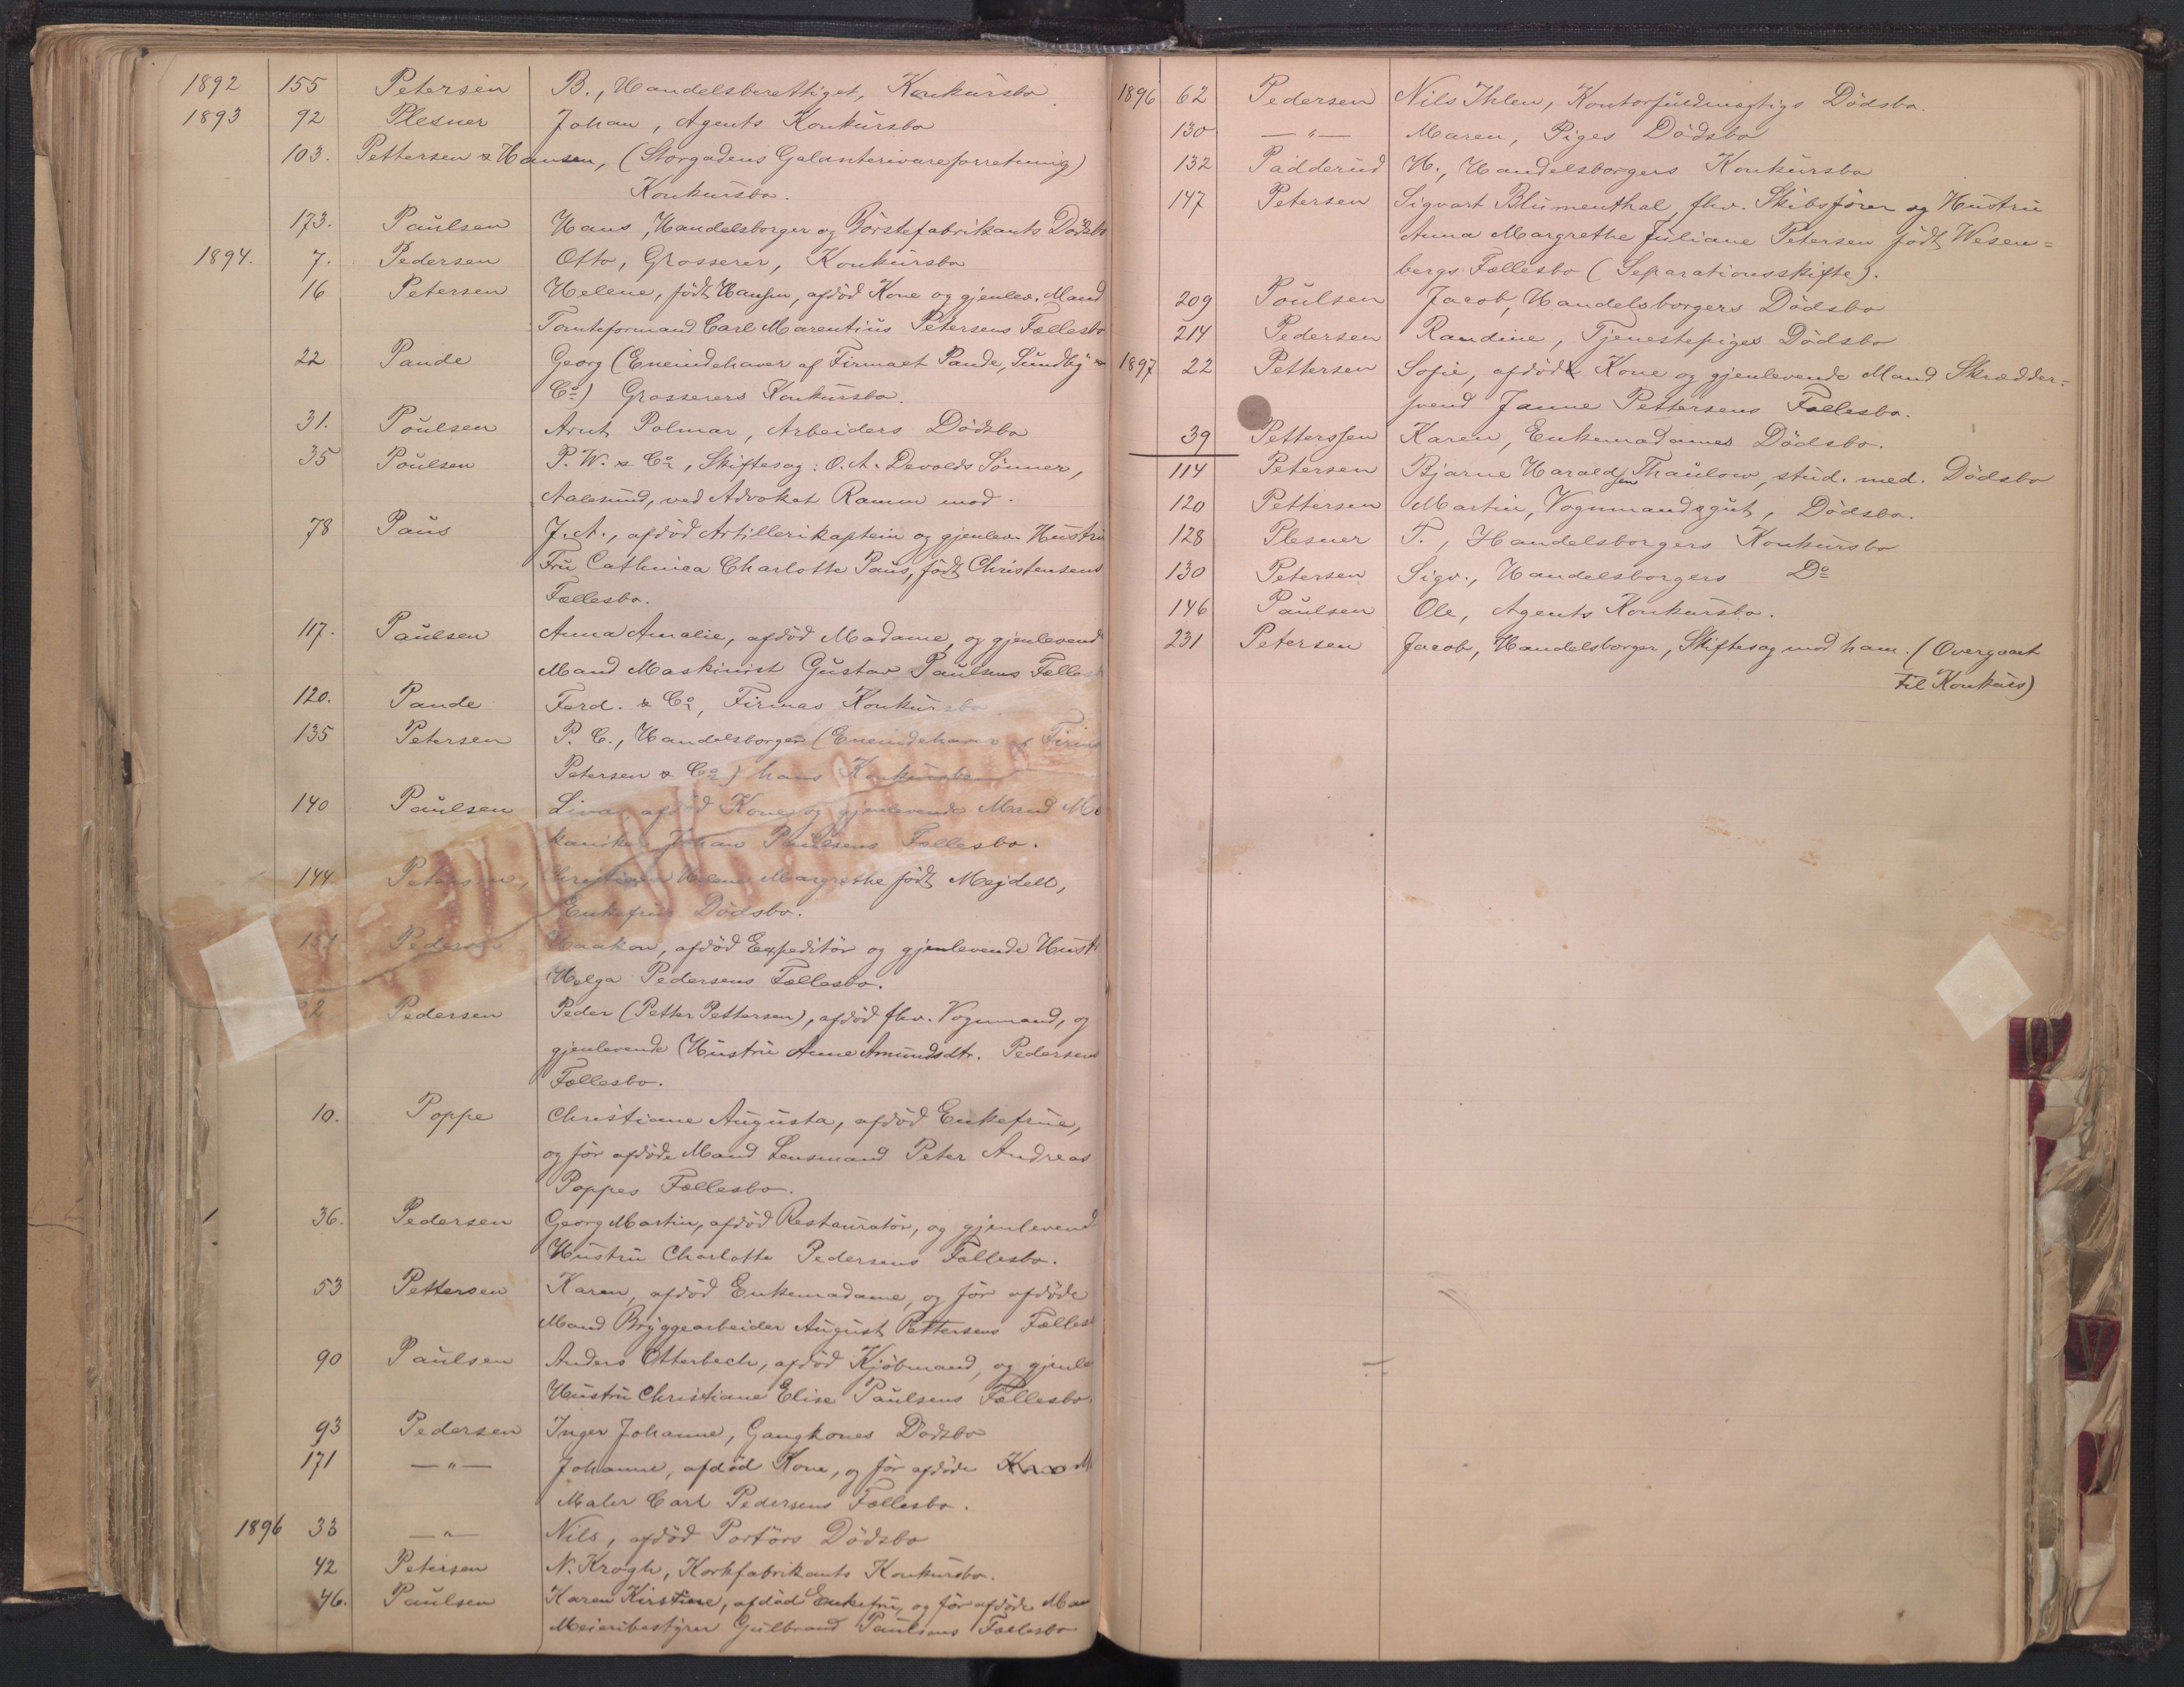 1892 155 Petersen B., Handelsberettiget, Konkursbo
1893 92 Plesner Johan, Agents Konkursbo
103. Pettersen & Hansen, (Storgadens Galanterivareforretning)
Konkursbo.
173. Paulsen Hans, Handelsborger og Börstefabrikants Dödsbo
1894. 7. Pedersen Otto, Grosserer, Konkursbo
16 Petersen Helene, födt Hansen, afdöd Kone og gjenlev. Mand
Tomteformand Carl Marentius Petersens Fællesbo
22 Pande Georg (Eneindehaver af Firmaet Pande, Sundby &
Co) Grosserers Konkursbo.
31. Poulsen Arnt Polmar, Arbeiders Dödsbo
35 Poulsen P. W. & Co, Skiftesag: O. A. Devolds Sönner,
Aalesund, ved Advokat Ramm mod.
78 Paus J. A., afdöd Artillerikaptein og gjenlev. Hustru
Fru Cathinca Charlotte Paus, födt Christensens
Fællesbo.
117. Paulsen Anna Amalie, afdöd Madame, og gjenlevend
Mand Maskinist Gustav Paulsens Fælles
120. Pande Ferd. & Co, Firmas Konkursbo
135 Petersen P. C., Handelsborger (Eneindehaver af Firma
Petersen & Co) hans Konkursbo
140 Paulsen Lina, afdöd Kone, og gjenlevende Mand Me
kaniker Johan Paulsens Fællesbo.
144 Petersen, Christiane Helene Margrethe födt Mejdell,
Enkefrues Dödsbo.
151 Pedersen Haakon, afdöd Expeditör og gjenlevende Hustr
Helga Pedersens Fællesbo.
2 Pedersen Peder (Petter Pettersen), afdöd fhv. Vognmand, og
gjenlevende Hustru Anne Amundsdtr. Pedersens
Fællesbo.
10. Poppe Christiane Augusta, afdöd Enkefrue,
og för afdöde Mand Lensmand Peter Andreas
Poppes Fællesbo.
36. Pedersen Georg Martin, afdöd Restauratör, og gjenlevend
Hustru Charlotte Pedersens Fællesbo.
53 Pettersen Karen, afdöd Enkemadame, og för afdöde
Mand Bryggearbeider August Pettersens Fælles
90 Paulsen Anders Otterbech, afdöd Kjöbmand, og gjenle
Hustru Christiane Elise Paulsens Fællesbo.
93 Pedersen Inger Johanne, Gangkones Dödsbo
171 — " — Johanne, afdöd Kone, og för afdöde M
Maler Carl Pedersens Fællesbo.
1896 33 — " — Nils, afdöd Portörs Dödsbo
42 Petersen N. Krogh, Korkfabrikants Konkursbo.
46. Paulsen Karen Kirstine, afdöd Enkefru, og för afdöde Man
Meieribestyrer Gulbrand Paulsens Fællesbo
1896 62 Pedersen Nils Ihlen, Kontorfuldmægtigs Dödsbo.
130 — " — Maren, Piges Dödsbo
132 Padderud H., Handelsborgers Konkursbo
147 Petersen Sigvart Blumenthal, fhv. Skibsförer og Hustru
Anna Margrethe Juliane Petersen födt Wesen=
bergs Fællesbo (Separationsskifte).
209 Poulsen Jacob, Handelsborgers Dödsbo
214 Pedersen Randine, Tjenestepiges Dödsbo
1897 22 Pettersen Sofie, afdöd Kone og gjenlevende Mand Skrædder=
svend Janne Pettersens Fællesbo.
39 Petterssen Karen, Enkemadames Dödsbo.
114 Petersen Bjarne Haraldsen Thaulow, stud. med. Dödsbo
120 Pettersen Martin, Vognmandsgut, Dödsbo.
128 Plesner T., Handelsborgers Konkursbo
130 Petersen Sigv., Handelsborgers Do
146 Paulsen Ole, Agents Konkursbo.
231 Petersen Jacob, Handelsborger, Skiftesag mod ham. (Overgaaet
til Konkurs)